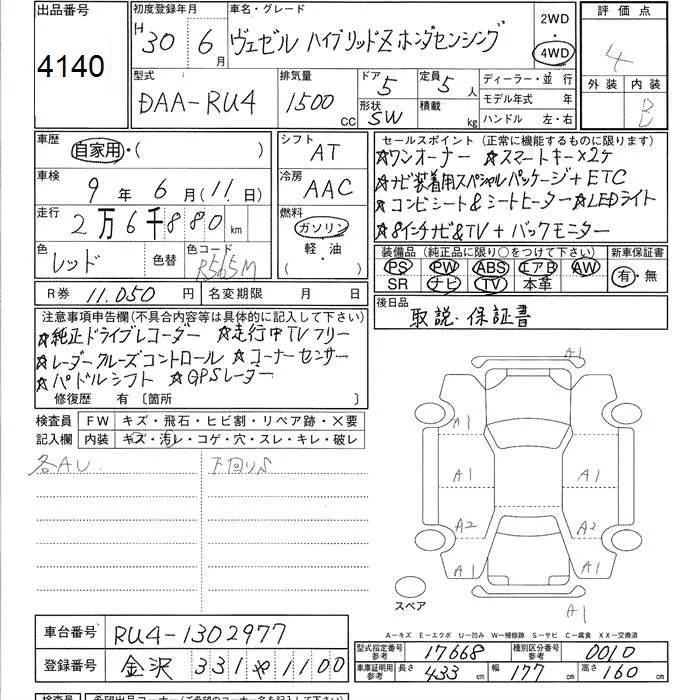 出品番号
4140
初度登録年月
H30年 6月
車名・グレード
ヴェゼル ハイブリッドZホンダセンシング
2WD
4WD
評価点
4
外装 内装
B
型式
DAA-RU4
排気量
1500 CC
ドア 5
形状 SW
定員 5人
積載 kg
ディーラー・並行
モデル年式 年
ハンドル 左・右
車歴
自家用・( )
車検
9年 6月(11日)
走行
2万6千880 km
色
レッド
色替
色コード
R565M
シフト
AT
冷房
AAC
燃料
ガソリン
・
軽・油
( )
R券 11,050円
名変期限 月 日
セールスポイント(正常に機能するものに限ります)
☆ワンオーナー ☆スマートキー×2ケ
☆ナビ装着用スペシャルパッケージ+ETC
☆コンビシート&シートヒーター ☆LEDライト
☆8インチナビ&TV+バックモニター
装備品(純正品に限り○をつけて下さい)
PS PW ABS エアB AW
SR ナビ TV 本革
新車保証書
有・無
後日品
取説・保証書
注意事項申告欄(不具合内容等は具体的に記入して下さい)
☆純正ドライブレコーダー ☆走行中TVフリー
☆レーダークルーズコントロール ☆コーナーセンサー
☆パドルシフト ☆GPSレーダー
修復歴 有〔箇所 〕
検査員
記入欄
FW キズ・飛石・ヒビ割・リペア跡・×要
内装 キズ・汚レ・コゲ・穴・スレ・キレ・破レ
各AU 下回りS
A1
A1 A1
A1 A1
A2 A2
A1 A1
A1
スペア
A-キズ E-エクボ U-凹み W-補修跡 S-サビ C-腐食 XX-交換済
車台番号 RU4-1302977
登録番号 金沢 331 や 1100
型式指定番号 参考 17668
種別区分番号 参考 0010
車庫証明用 参考 長さ 433 cm 幅 177 cm 高さ 160 cm
検査員
希望出品コーナー(ご希望のコーナー名を記入して下さい)